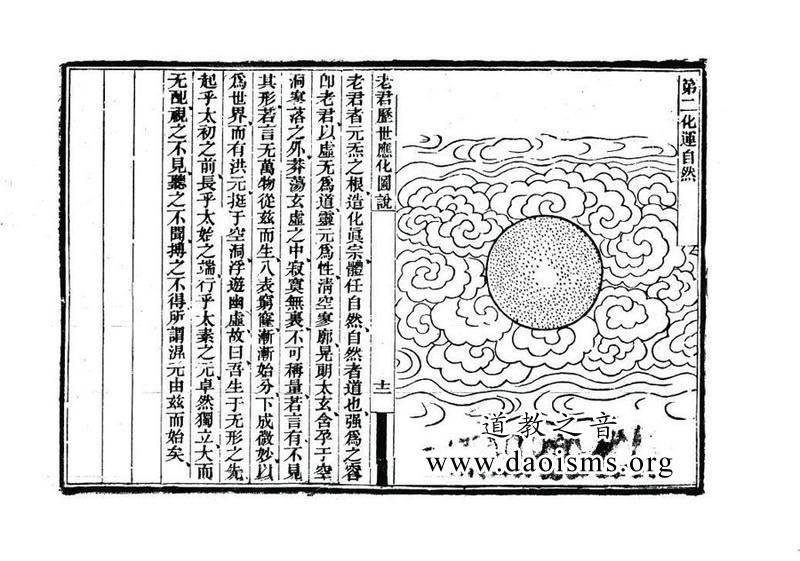 第二化運自然
老君歷世應化圖說
十二
老君者元炁之根造化眞宗體任自然自然者道也强爲之容
卽老君以虛无爲道靈元爲性淸空寥廓晃朗太玄含孕于空
洞寥落之外莽蕩玄虛之中寂寞無裏不可稱量若言有不見
其形若言无萬物從兹而生八表窮窿漸漸始分下成微妙以
爲世界而有洪元挺于空洞浮遊幽虛故曰吾生于无形之先
起乎太初之前長乎太始之端行乎太素之元卓然獨立大而
无配視之不見聽之不聞搏之不得所謂混元由兹而始矣
道教之音
www.daoisms.org